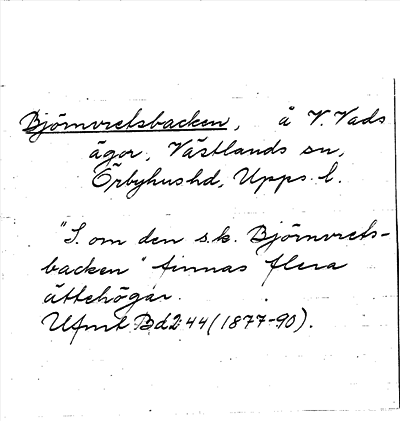 Björnvretsbacken, å V. Vads
ägor, Västlands sn,
Örbyhus hd, Upps. l.
"S. om den s.k. Björnvrets-
backen" finnas flera
ättehögar.
Ufmt Bd2:44 (1877-90).